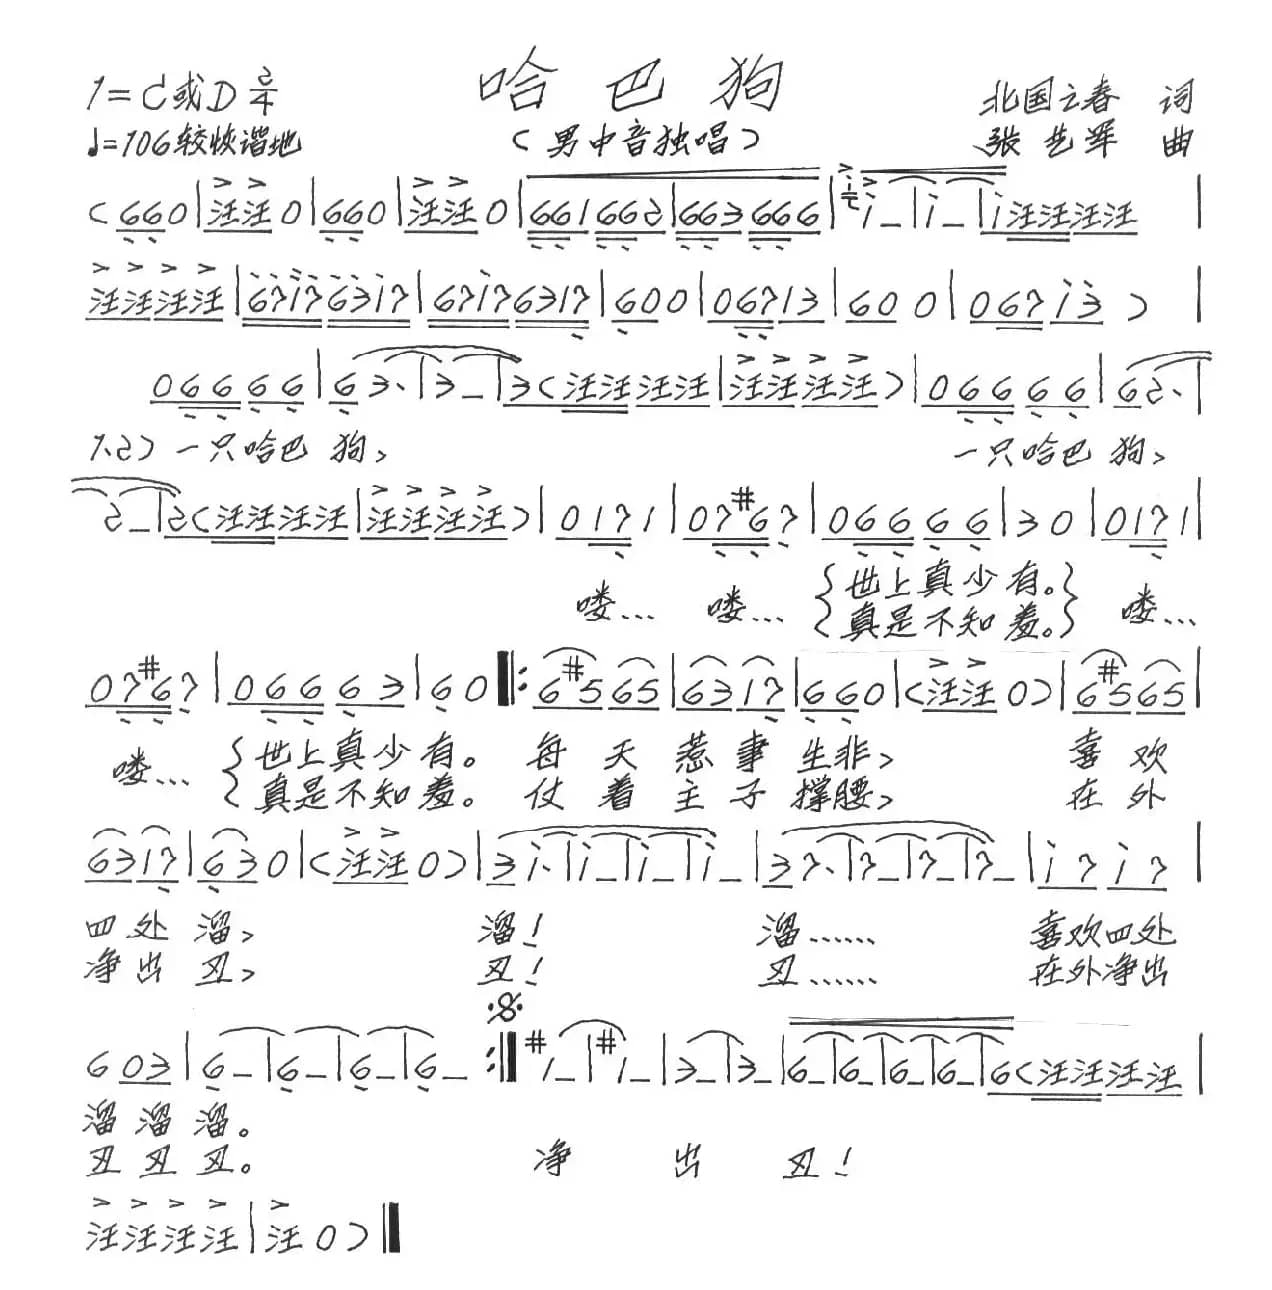 哈巴狗
1=C或D 2/4
北国之春 词
♩=106较恢谐地
(男中音独唱)
张艺军 曲
(660|汪汪0|660|汪汪0|661662|663666|i_|i_|i汪汪汪汪|
汪汪汪汪|67i76317|67i76317|600|06713|600|067i3)|
06666|63.|3_|3(汪汪汪汪|汪汪汪汪)|06666|62.|
1.2)一只哈巴狗, 一只哈巴狗,
2_|2(汪汪汪汪|汪汪汪汪)|0171|07#67|06666|30|0171|
喽... 喽... {世上真少有。} 喽...
{真是不知羞。}
07#67|06663|60‖:6#565|6317|660|(汪汪0)|6#565|
喽... {世上真少有。 每天惹事生非, 喜欢
{真是不知羞。 仗着主子撑腰, 在外
6317|630|(汪汪0)|3i.|i_|i_|i_|37.|7_|7_|7_|i7i7|
四处溜, 溜! 溜...... 喜欢四处
净出丑, 丑! 丑...... 在外净出
603|6_|6_|6_|6_:‖#1_|#1_|3_|3_|6_|6_|6_|6_|6(汪汪汪汪|
溜溜溜。
丑丑丑。 净出丑!
汪汪汪汪|汪0)‖